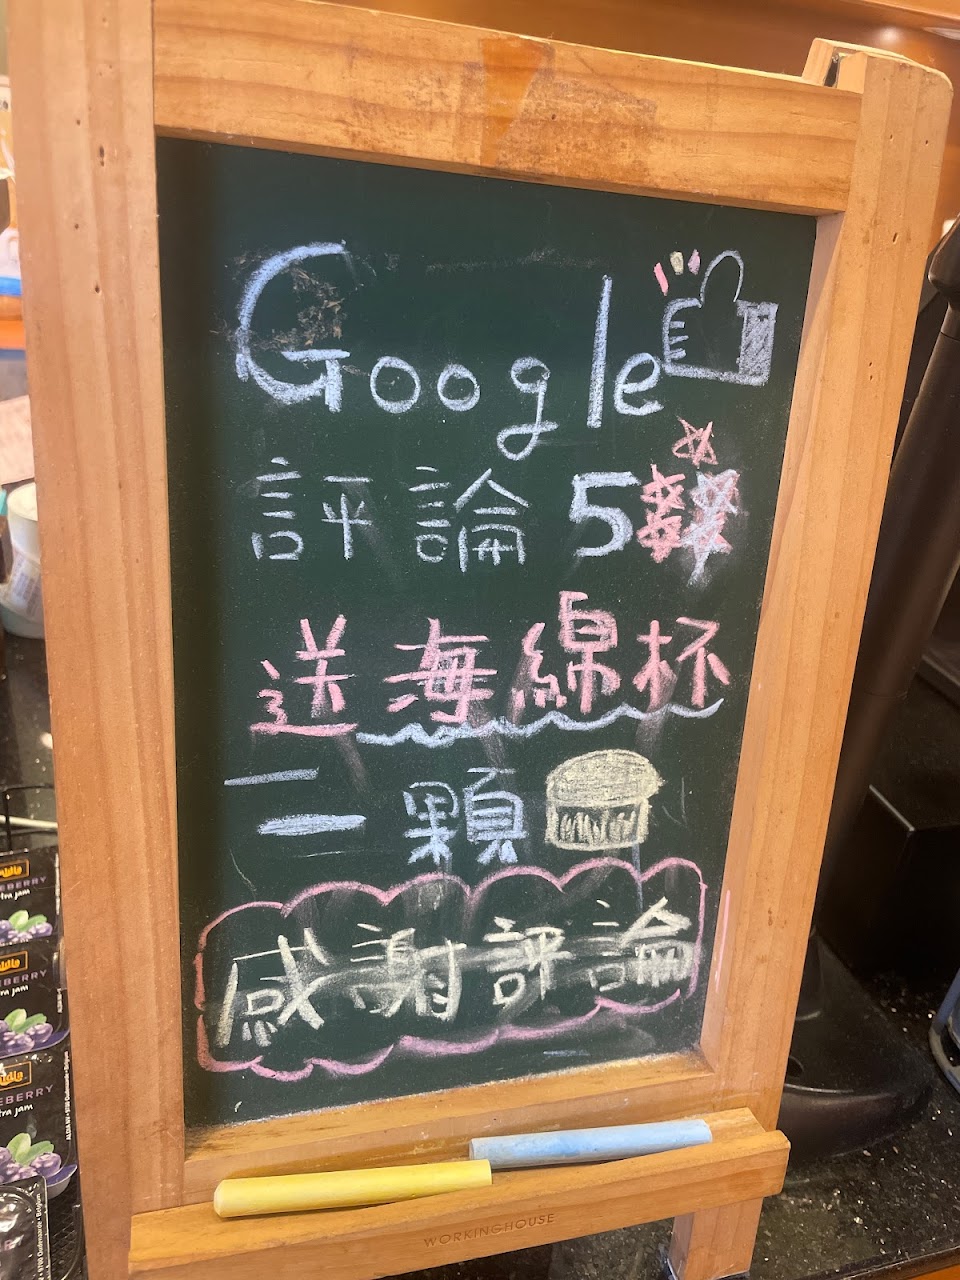 Google
評論5
送海綿杯
二顆
感謝評論
WORKINGHOUSE
EBERRY
tra jam
EBERRY
tra jam
EBERRY
tra jam